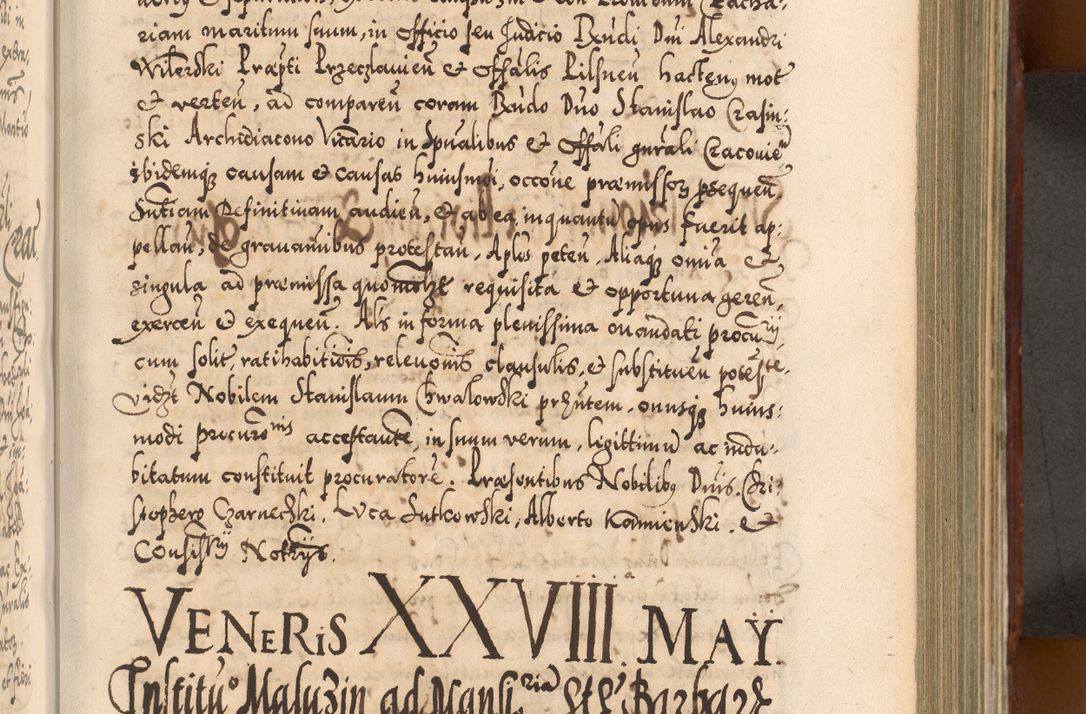 riam maritum suum, in officio seu Judicio Rxndi Dni Alexandri
Præpti Przeczlauien̄ & Offalis Pilsnen̄ hacteng mot
& verten̄, ad comparen̄ coram Rxndo Dno Stanislao Crasin:
ski Archidiacono Vicario in Spualibus & Offali gnrali Cracouien̄
ibidemq̧ causam & causas huiusmoi, occone præmissoꝝ psequen̄
Sntiam Definitiuam audien̄, & ab ea, inquantū opus fuerit ap:
pellan̄, de grauaminibus protestan̄, Aplos peten̄, Aliaq̧ omia &
singula ad præmissa quomolȝt requisita & opportuna geren̄,
exercen̄ & exequen̄. Als in forma plenissima mandati procurij
cum solit, ratihabitiōis, releuonis clausulis, & substituen̄ potēste.
vidȝt Nobilem Stanislaum Chwalowski prhntem, onusq̧ huius:
modi procuroris acceptantē, in suum verum, ligittimū ac indu:
bitatum constituit procuratorē. Præsentibus Nobilibȝ Dnis Chri:
stophero Czarnecski, Luca Lutkowski, Alberto Kamienski &
Consistrij Notrijs.
VENERIS XXVIIII.a MAŸ.
Institūo Maluzin ad Mansi:riā Stæ Barbaræ